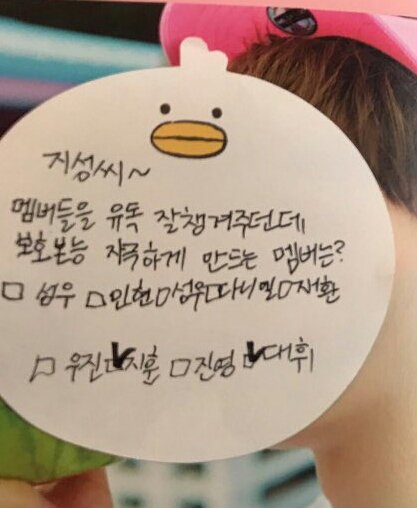 지성씨~
멤버들을 유독 잘챙겨주던데,
보호본능 자극하게 만드는 멤버는?
□ 성우 □민현□성운□다니엘□재환
□ 우진☑지훈 □진영☑대휘